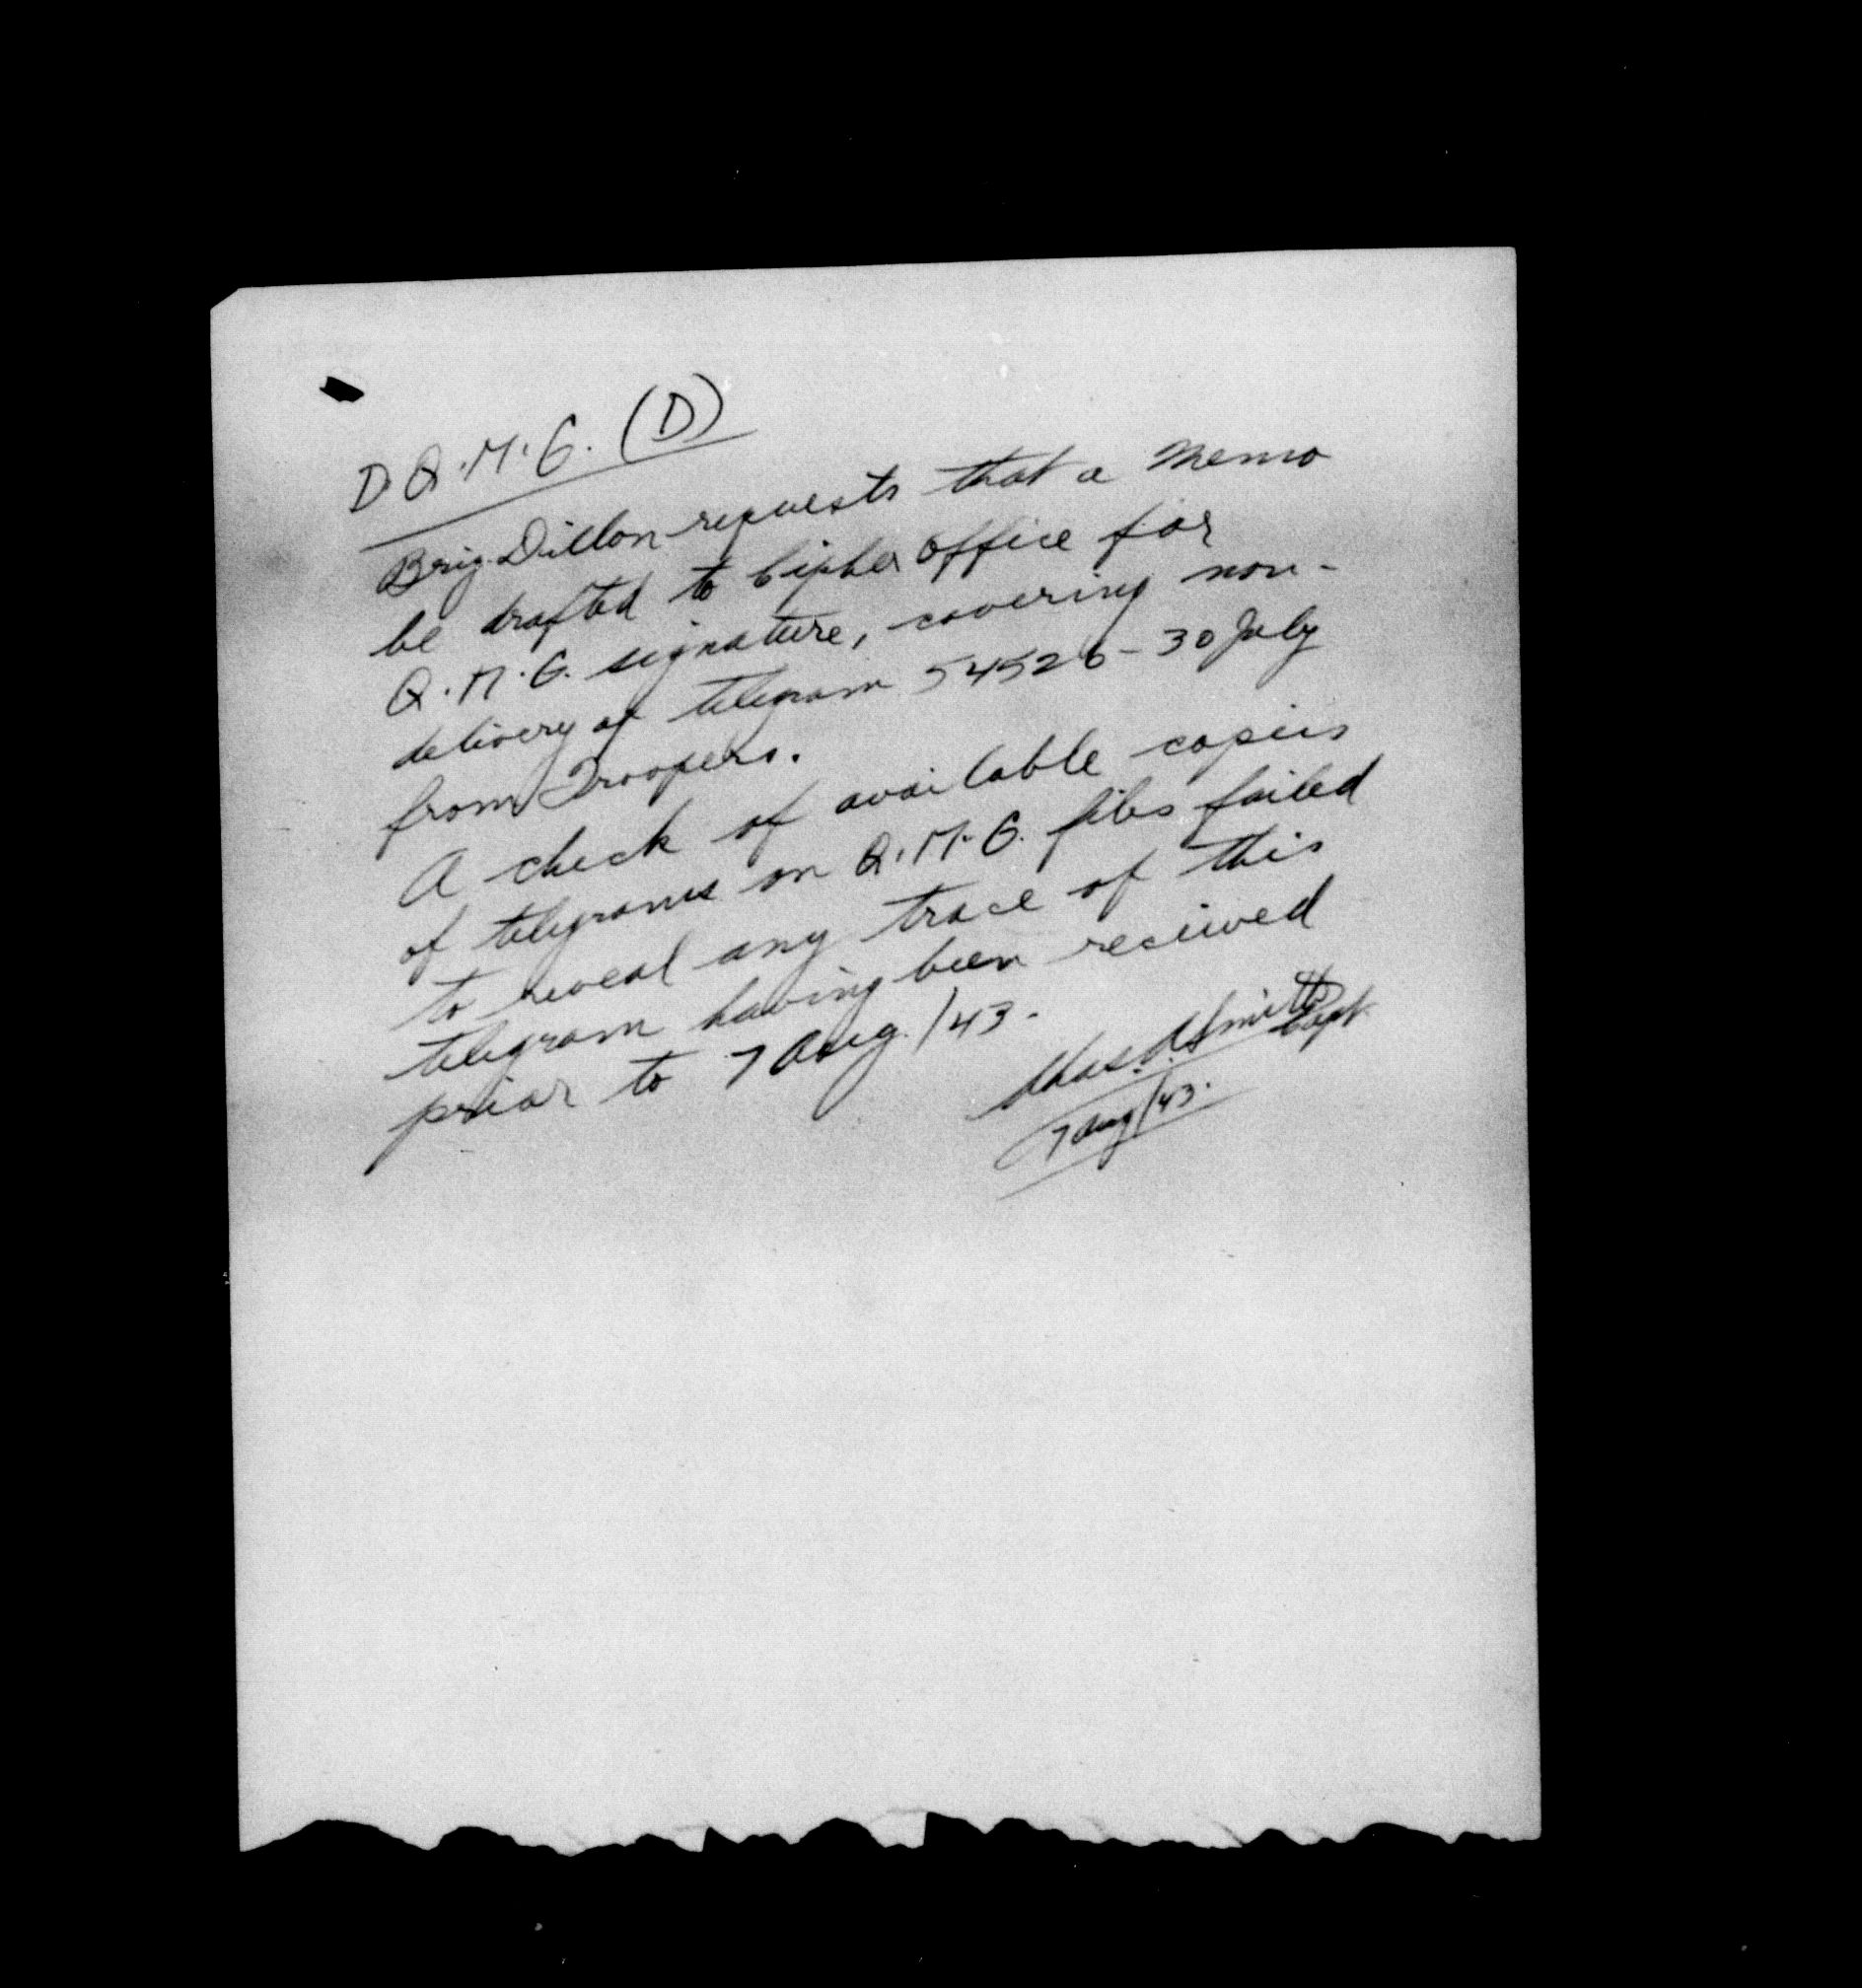 D.Q.M.G. (D)
Brig. Dillon requests that a memo
be drafted to Cipher Office for
Q.M.G. signature, covering non-
delivery of telegram 54526 - 30 July
from Troopers.
A check of available copies
of telegrams on Q.M.G. files failed
to reveal any trace of this
telegram having been received
prior to 7 Aug./43.
Chas. A. Smith
Capt.
7 Aug/43.